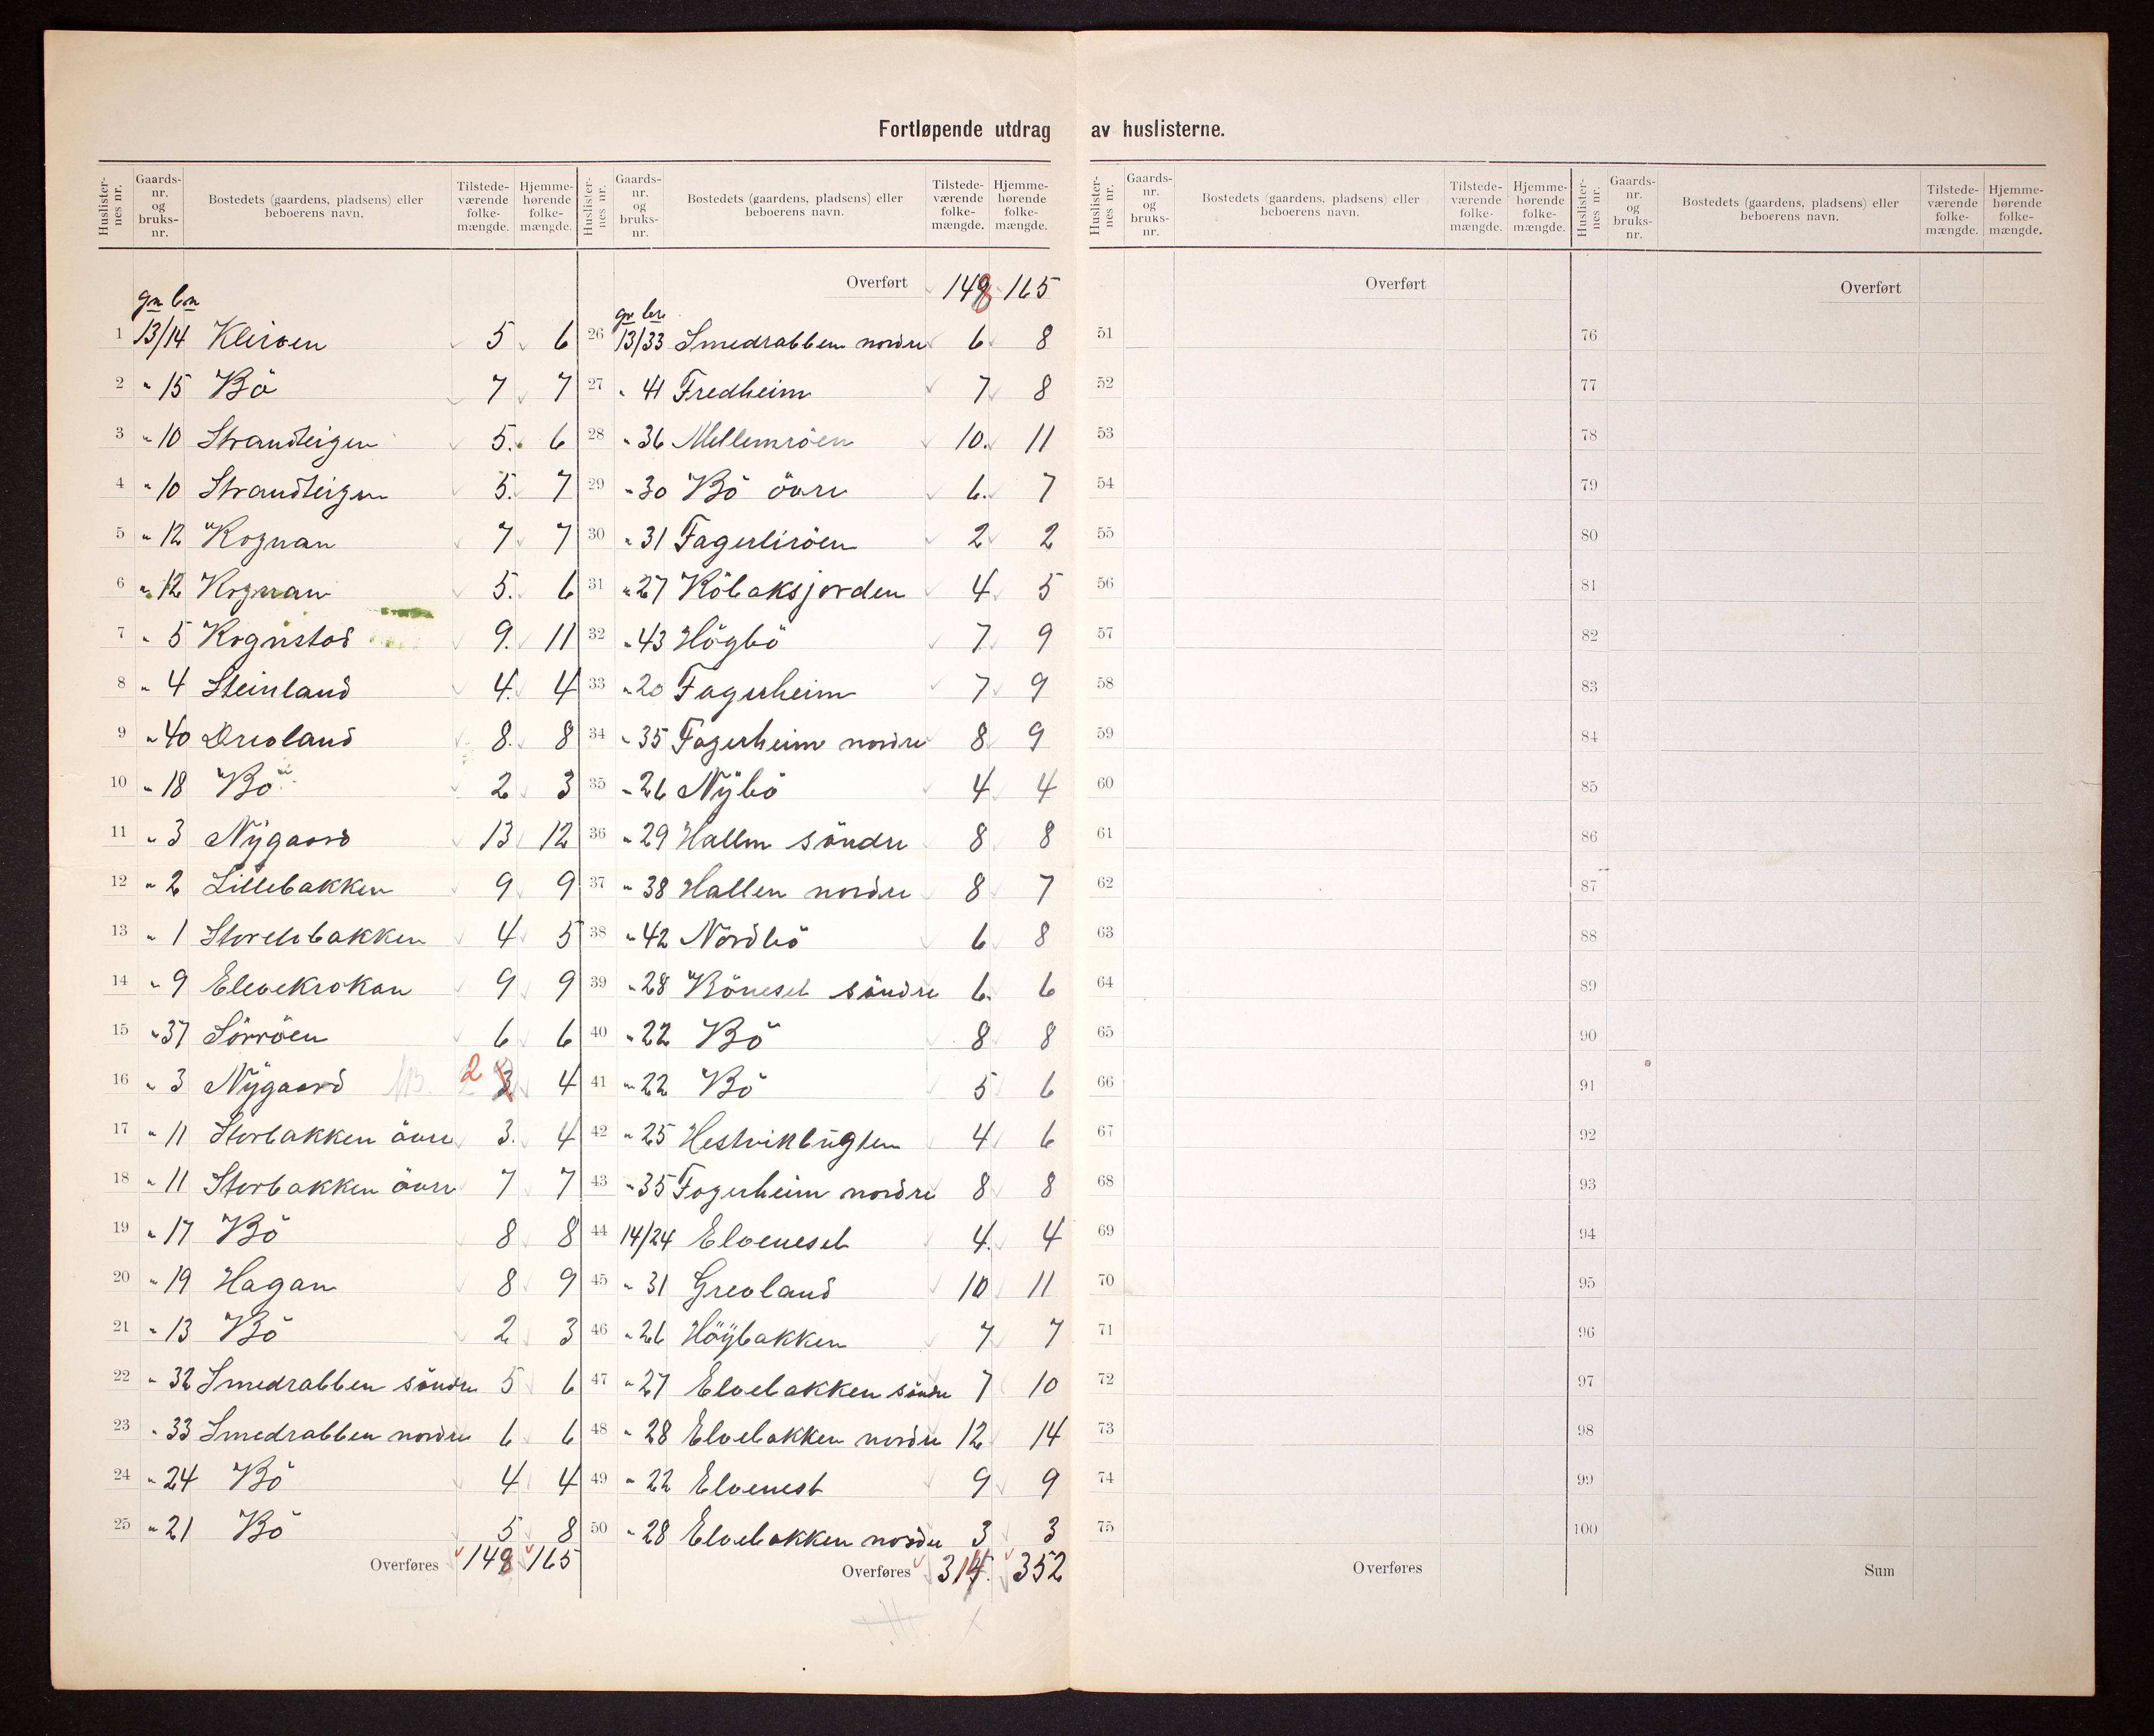 Fortløpende utdrag av huslisterne.
Huslisternes nr. Gaards-nr. og bruks-nr. Bostedets (gaardens, pladsens) eller beboerens navn. Tilstedeværende folkemængde. Hjemmehørende folkemængde.
gn bn
1 13/14 Kleiven 5 6
2 " 15 Bö 7 7
3 " 10 Strandteigen 5. 6
4 " 10 Strandteigen 5. 7
5 " 12 Rognan 7 7
6 " 12 Rognan 5. 6
7 " 5 Rognstad 9. 11
8 " 4 Steinland 4. 4
9 " 40 Drevland 8. 8
10 " 18 Bö 2 3
11 " 3 Nÿgaard 13 12
12 " 2 Lillebakken 9 9
13 " 1 Storelvbakken 4 5
14 " 9 Elvekrokan 9 9
15 " 37 Sörröen 6 6
16 " 3 Nÿgaard NB. 2 3 4
17 " 11 Storbakken övre 3. 4
18 " 11 Storbakken övre 7 7
19 " 17 Bö 8 8
20 " 19 Hagan 8 9
21 " 13 Bö 2 3
22 " 32 Smedrabben söndre 5 6
23 " 33 Smedrabben nordre 6 6
24 " 24 Bö 4 4
25 " 21 Bö 5 8
Overføres 148 165
Huslisternes nr. Gaards-nr. og bruks-nr. Bostedets (gaardens, pladsens) eller beboerens navn. Tilstedeværende folkemængde. Hjemmehørende folkemængde.
Overført 148 165
gn bn
26 13/33 Smedrabben nordre 6 8
27 " 41 Fredheim 7 8
28 " 36 Mellemröen 10. 11
29 " 30 Bö övre 6. 7
30 " 31 Fagerliröen 2 2
31 " 27 Köbaksjorden 4 5
32 " 43 Högbö 7 9
33 " 20 Fagerheim 7 9
34 " 35 Fagerheim nordre 8 9
35 " 26 Nÿbö 4 4
36 " 29 Hallen söndre 8 8
37 " 38 Hallen nordre 8 7
38 " 42 Nordbö 6 8
39 " 28 Böneset söndre 6. 6
40 " 22 Bö 8 8
41 " 22 Bö 5 6
42 " 25 Hestvikbugten 4 6
43 " 35 Fagerheim nordre 8 8
44 14/24 Elveneset 4. 4
45 " 31 Grevland 10 11
46 " 26 Höÿbakken 7 7
47 " 27 Elvebakken söndre 7 10
48 " 28 Elvebakken nordre 12 14
49 " 22 Elvenest 9 9
50 " 28 Elvebakken nordre 3 3
Overføres 314. 352
Huslisternes nr. Gaards-nr. og bruks-nr. Bostedets (gaardens, pladsens) eller beboerens navn. Tilstedeværende folkemængde. Hjemmehørende folkemængde.
Overført
51
52
53
54
55
56
57
58
59
60
61
62
63
64
65
66
67
68
69
70
71
72
73
74
75
Overføres
Huslisternes nr. Gaards-nr. og bruks-nr. Bostedets (gaardens, pladsens) eller beboerens navn. Tilstedeværende folkemængde. Hjemmehørende folkemængde.
Overført
76
77
78
79
80
81
82
83
84
85
86
87
88
89
90
91
92
93
94
95
96
97
98
99
100
Sum